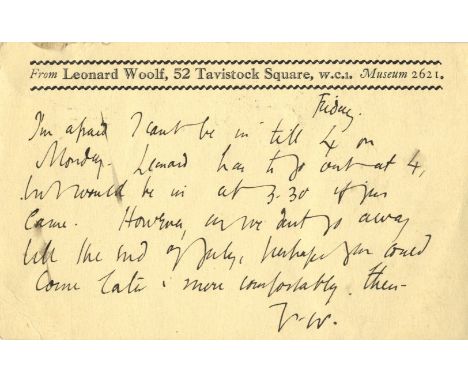 From Leonard Woolf, 52 Tavistock Square, W.C.1. Museum 2621.
Friday.
I'm afraid I cant be in till 4 on
Monday. Leonard has to go out at 4,
but would be in at 3.30 if you
came. However, as we dont go away
till the end of July, perhaps you could
come later & more comfortably then-
V.W.